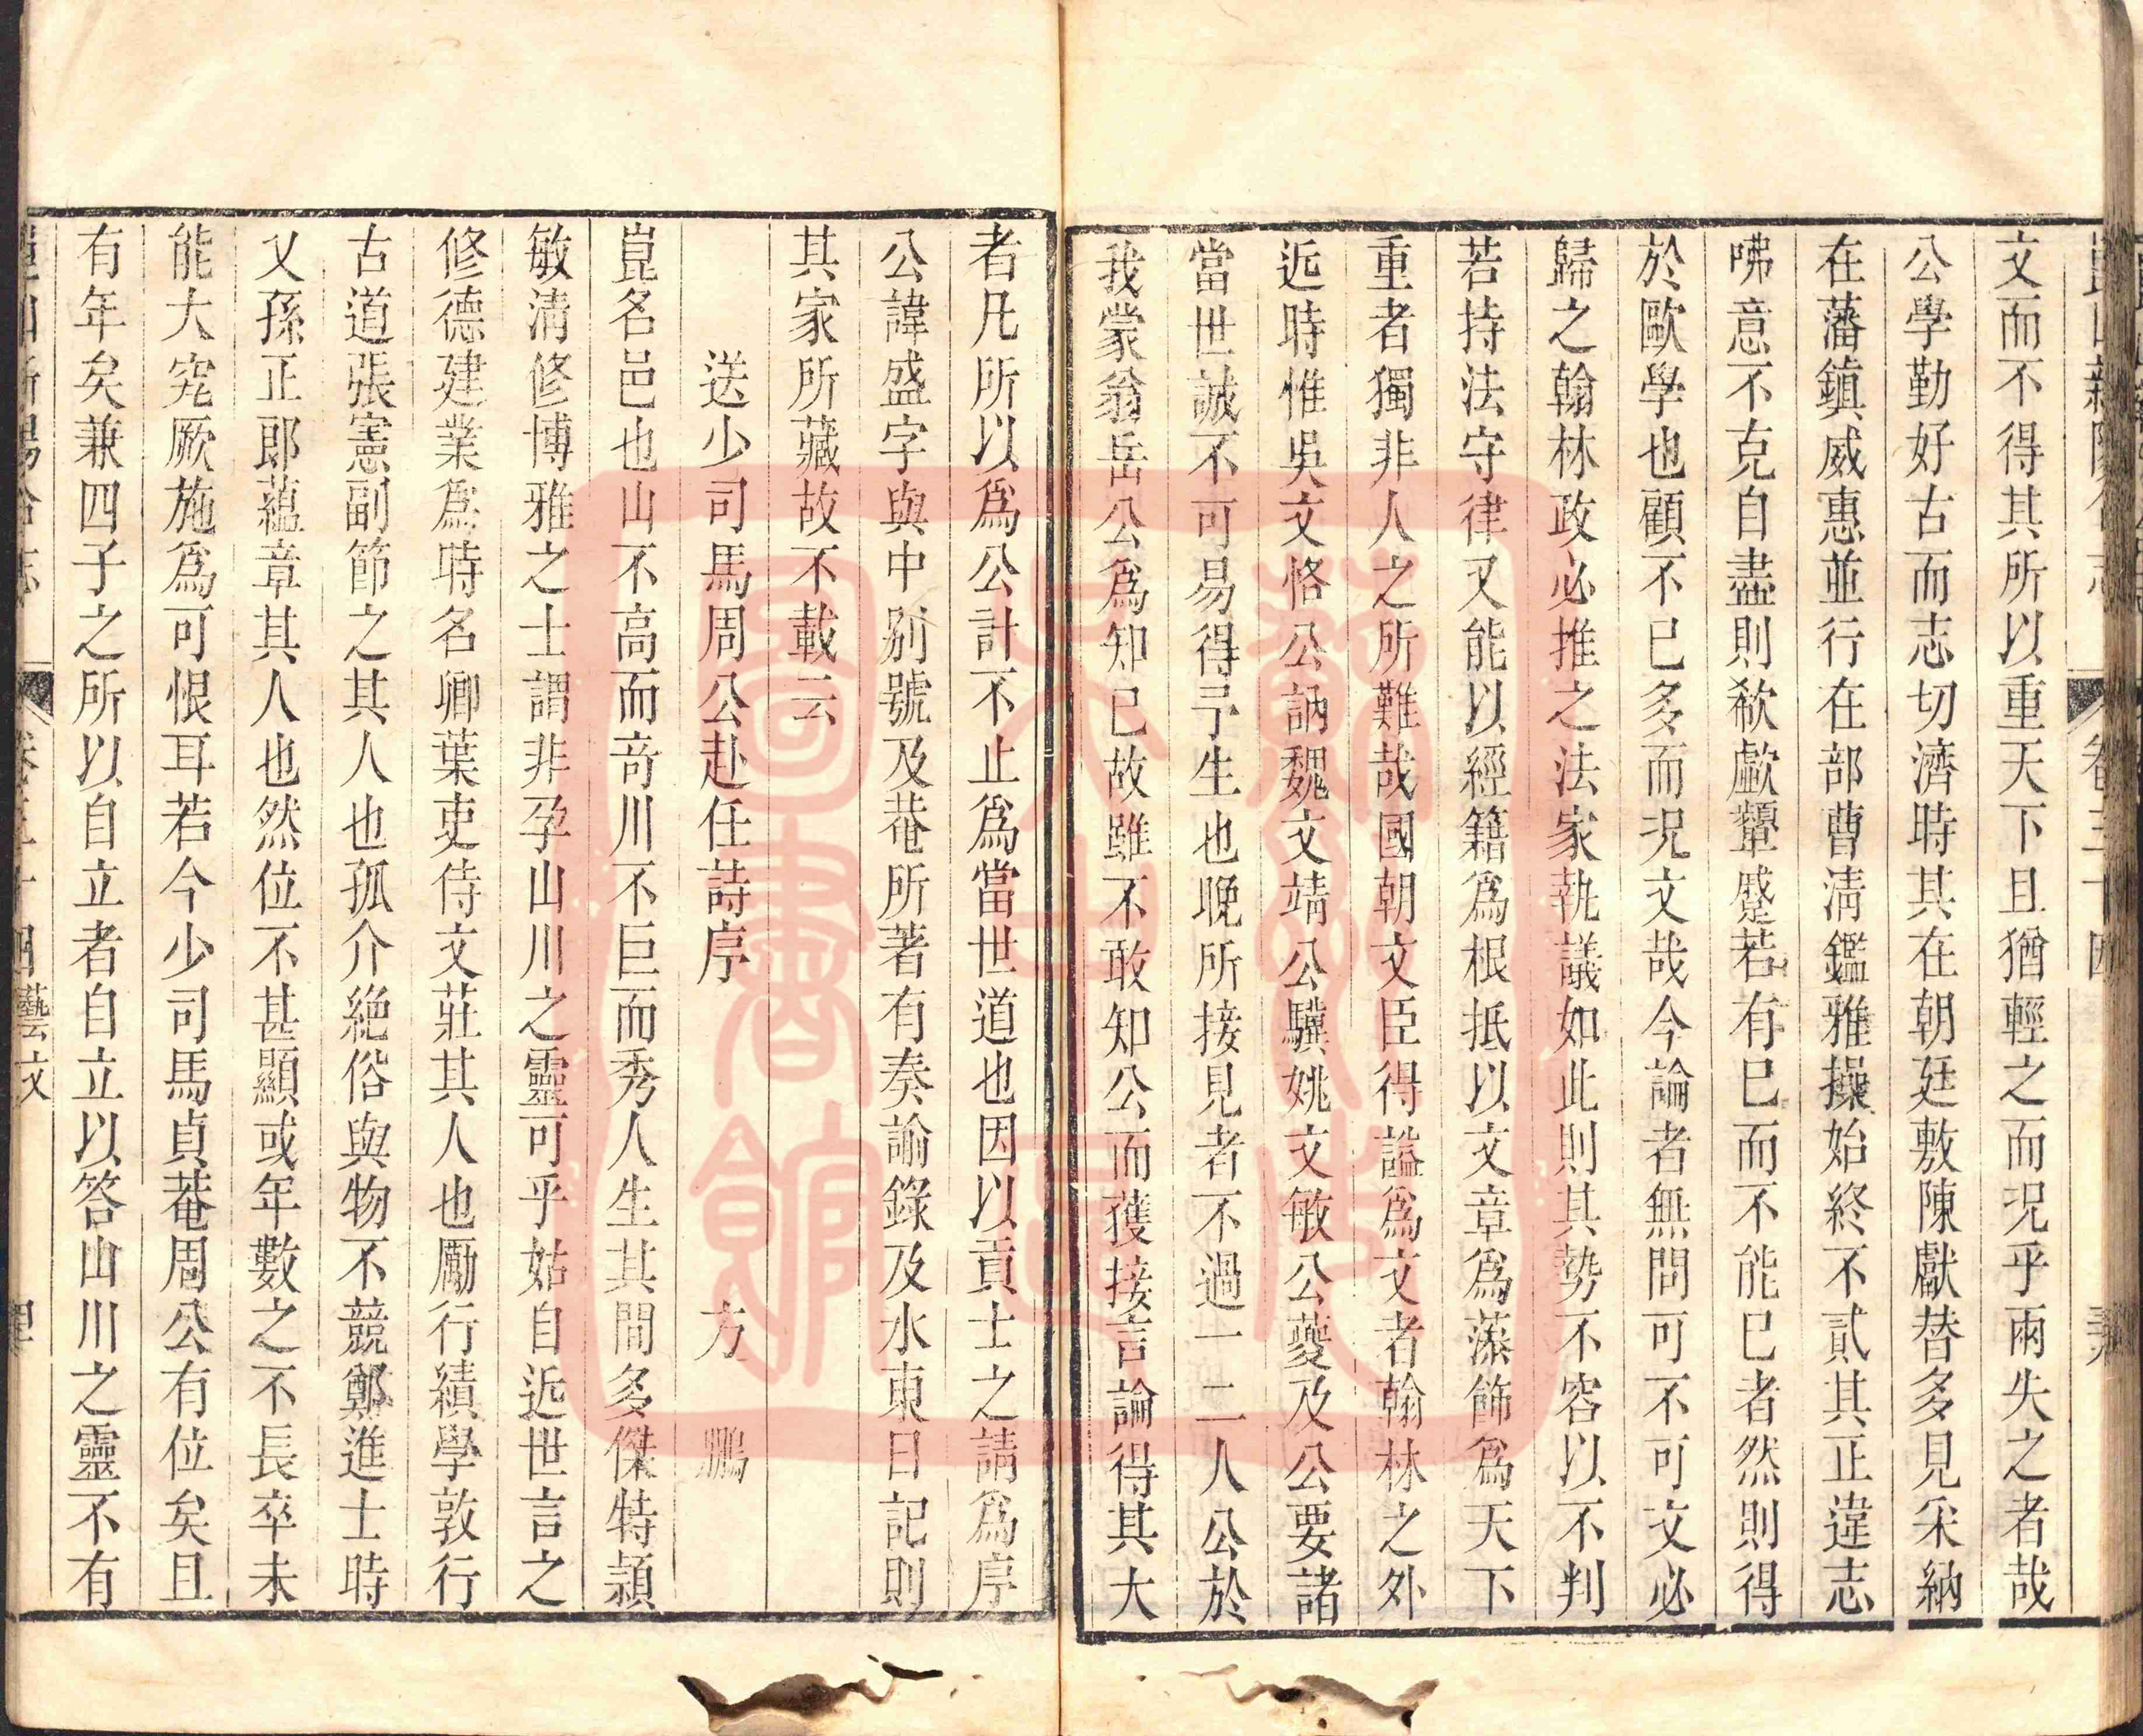 文而不得其所以重天下且猶輕之而況乎兩失之者哉
公學勤好古而志切濟時其在朝廷敷陳獻替多見采納
在藩鎮威惠並行在部曹清鑑雅操始終不貳其正違志
咈意不克自盡則欷歔顰蹙若有已而不能已者然則得
於歐學也顧不已多而況文哉今論者無問可不可文必
歸之翰林政必推之法家執議如此則其勢不容以不判
若持法守律又能以經籍爲根抵以文章爲藻飾爲天下
重者獨非人之所難哉國朝文臣得謚爲文者翰林之外
近時惟吳文恪公訥魏文靖公驥姚文敏公夔及公要諸
當世誠不可易得予生也晚所接見者不過一二人公於
我蒙翁岳公爲知已故雖不敢知公而獲接言論得其大
者凡所以爲公計不止爲當世道也因以貢士之請爲序
公諱盛字與中别號及菴所著有奏諭錄及水東日記則
其家所藏故不載云
送少司馬周公赴任詩序 方 鵬
崑名邑也山不高而奇川不巨而秀人生其間多傑特潁
敏清修博雅之士謂非孕山川之靈可乎姑自近世言之
修德建業爲時名卿葉吏侍文莊其人也勵行績學敦行
古道張憲副節之其人也孤介絕俗與物不競鄭進士時
乂孫正郎蘊章其人也然位不甚顯或年數之不長卒未
能大究厥施爲可恨耳若今少司馬貞菴周公有位矣且
有年矣兼四子之所以自立者自立以答山川之靈不有
藝文
蘇州大公司立圖書館